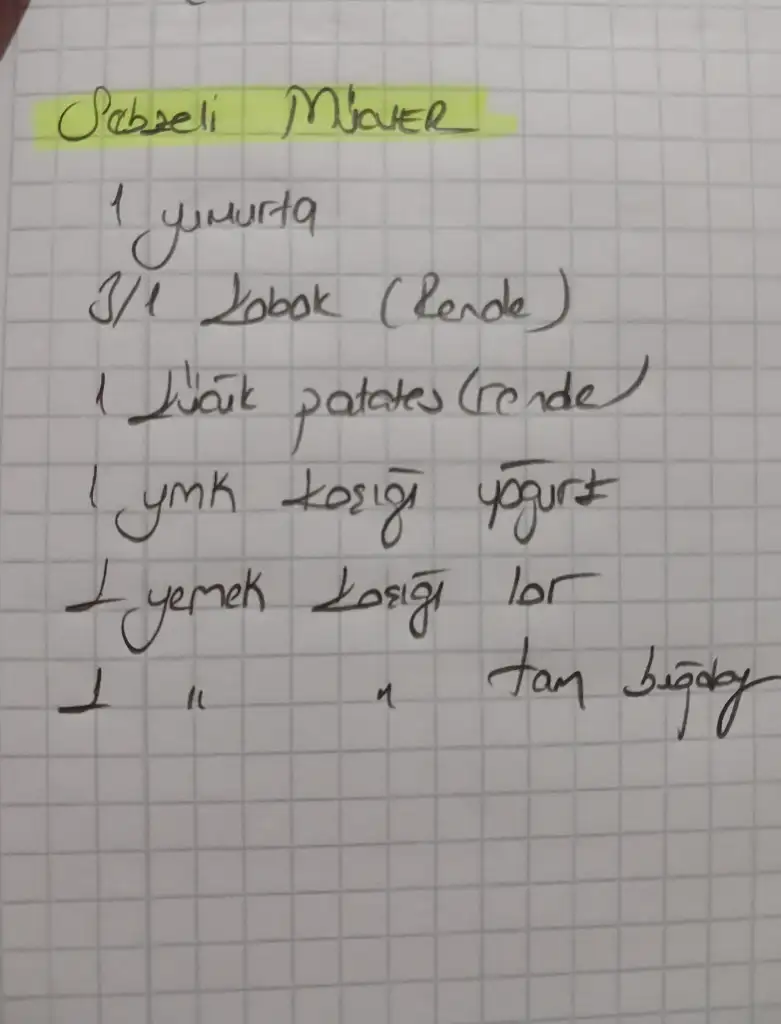 Sebzeli MÜCVER
1 yumurta
3/1 kabak (Rende)
1 küçük patates (rende)
1 ymk kaşığı yoğurt
1 yemek kaşığı lor
1 " " tam buğday